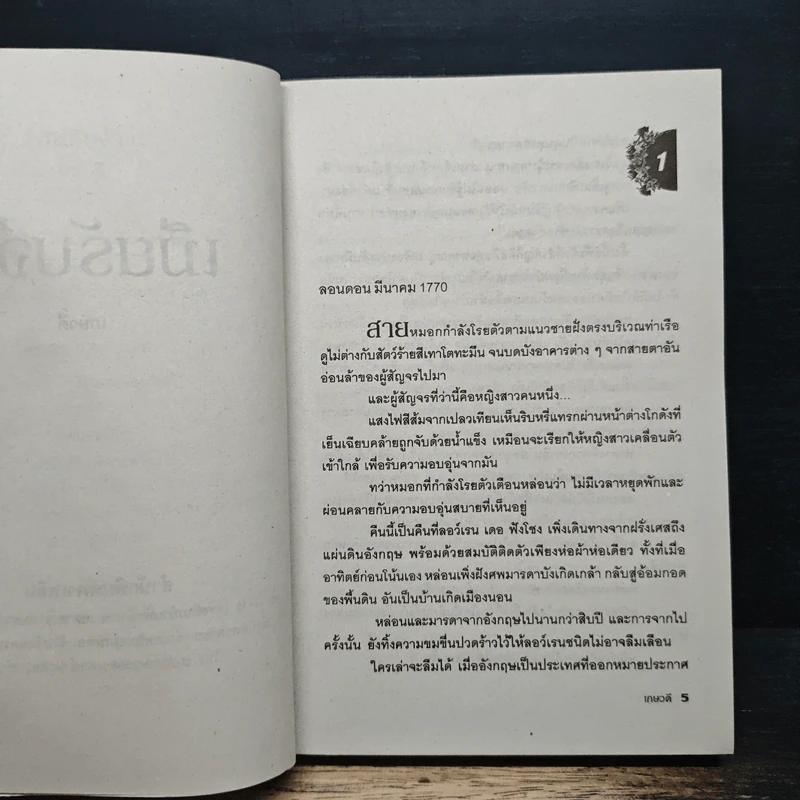 1
ลอนดอน มีนาคม 1770
สายหมอกกำลังโรยตัวตามแนวชายฝั่งตรงบริเวณท่าเรือ
ดูไม่ต่างกับสัตว์ร้ายสีเทาโตทะมึน จนบดบังอาคารต่าง ๆ จากสายตาอัน
อ่อนล้าของผู้สัญจรไปมา
และผู้สัญจรที่ว่านี้คือหญิงสาวคนหนึ่ง...
แสงไฟสีส้มจากเปลวเทียนเห็นริบหรี่แทรกผ่านหน้าต่างโกดังที่
เย็นเฉียบคล้ายถูกจับด้วยน้ำแข็ง เหมือนจะเรียกให้หญิงสาวเคลื่อนตัว
เข้าใกล้ เพื่อรับความอบอุ่นจากมัน
ทว่าหมอกที่กำลังโรยตัวเตือนหล่อนว่า ไม่มีเวลาหยุดพักและ
ผ่อนคลายกับความอบอุ่นสบายที่เห็นอยู่
คืนนี้เป็นคืนที่ลอว์เรน เดอ ฟังโชง เพิ่งเดินทางจากฝรั่งเศสถึง
แผ่นดินอังกฤษ พร้อมด้วยสมบัติติดตัวเพียงห่อผ้าห่อเดียว ทั้งที่เมื่อ
อาทิตย์ก่อนโน้นเอง หล่อนเพิ่งฝังศพมารดาบังเกิดเกล้า กลับสู่อ้อมกอด
ของพื้นดิน อันเป็นบ้านเกิดเมืองนอน
หล่อนและมารดาจากอังกฤษไปนานกว่าสิบปี และการจากไป
ครั้งนั้น ยังทิ้งความขมขื่นปวดร้าวไว้ให้ลอว์เรนชนิดไม่อาจลืมเลือน
ใครเล่าจะลืมได้ เมื่ออังกฤษเป็นประเทศที่ออกหมายประกาศ
เกษวดี 5